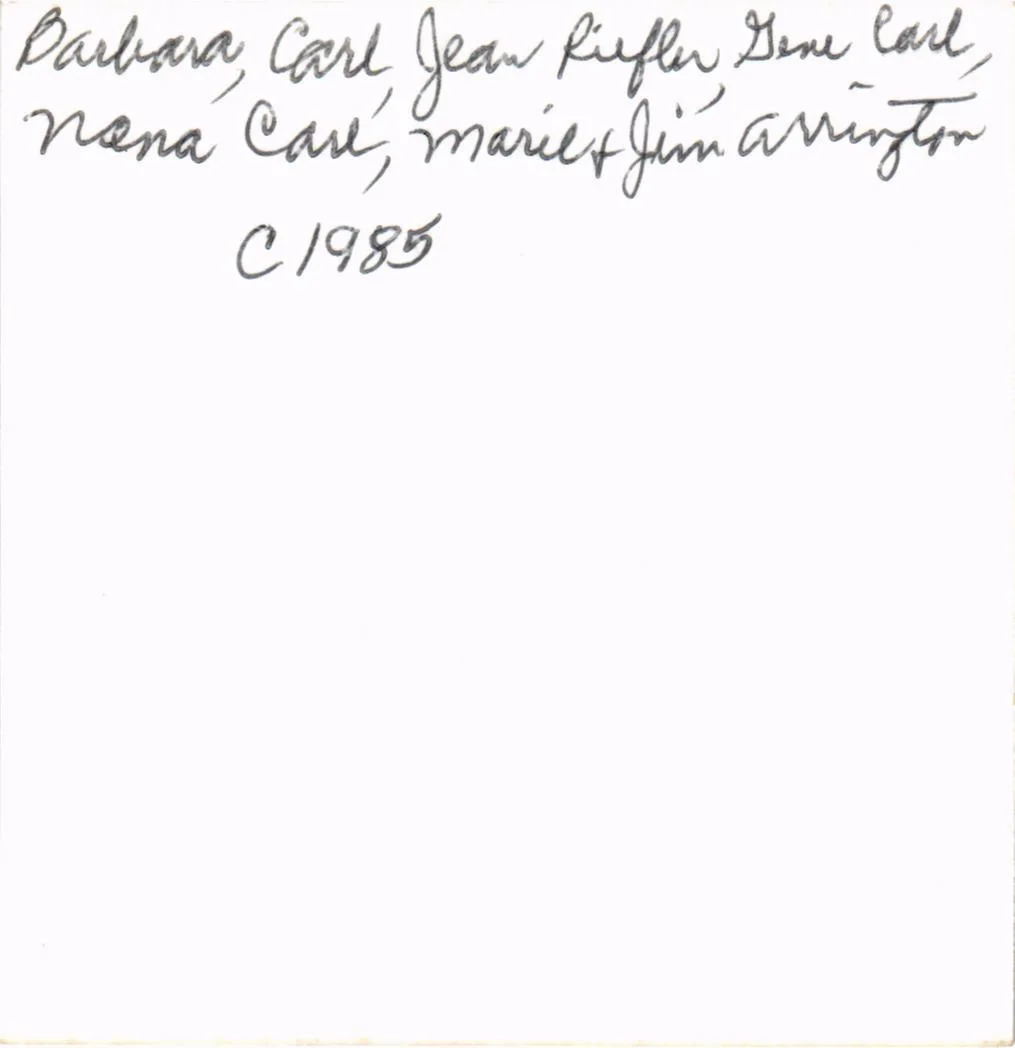 Barbara, Carl, Jean Riefler, Gene Carl,
Nana Carl, Marie & Jim Arrington
C 1985